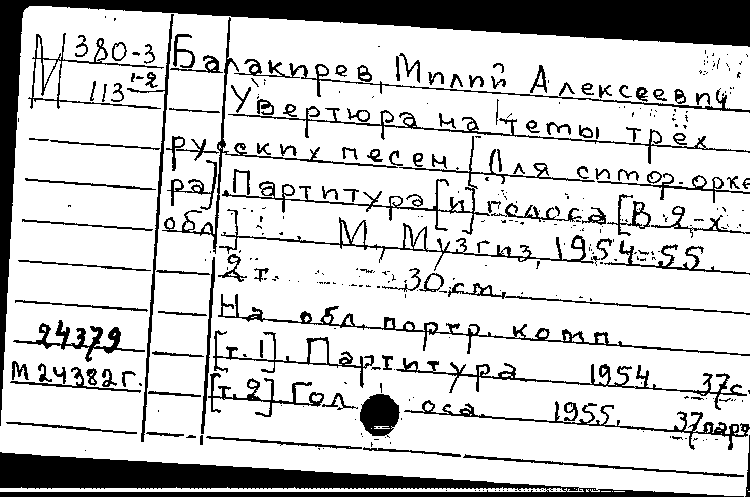 М 380-3
113 1-2
Балакирев, Милий Алексеевич
Увертюра на темы трёх
русских песен. [Для симф. орке
ра]. Партитура [и] голоса [В 2-х
обл.] М., Музгиз, 1954-55.
2 т. 30 см.
На обл. портр. комп.
24379
[т. 1]. Партитура 1954. 37 с.
М 24382 г.
[т. 2] Голоса. 1955. 37 парт